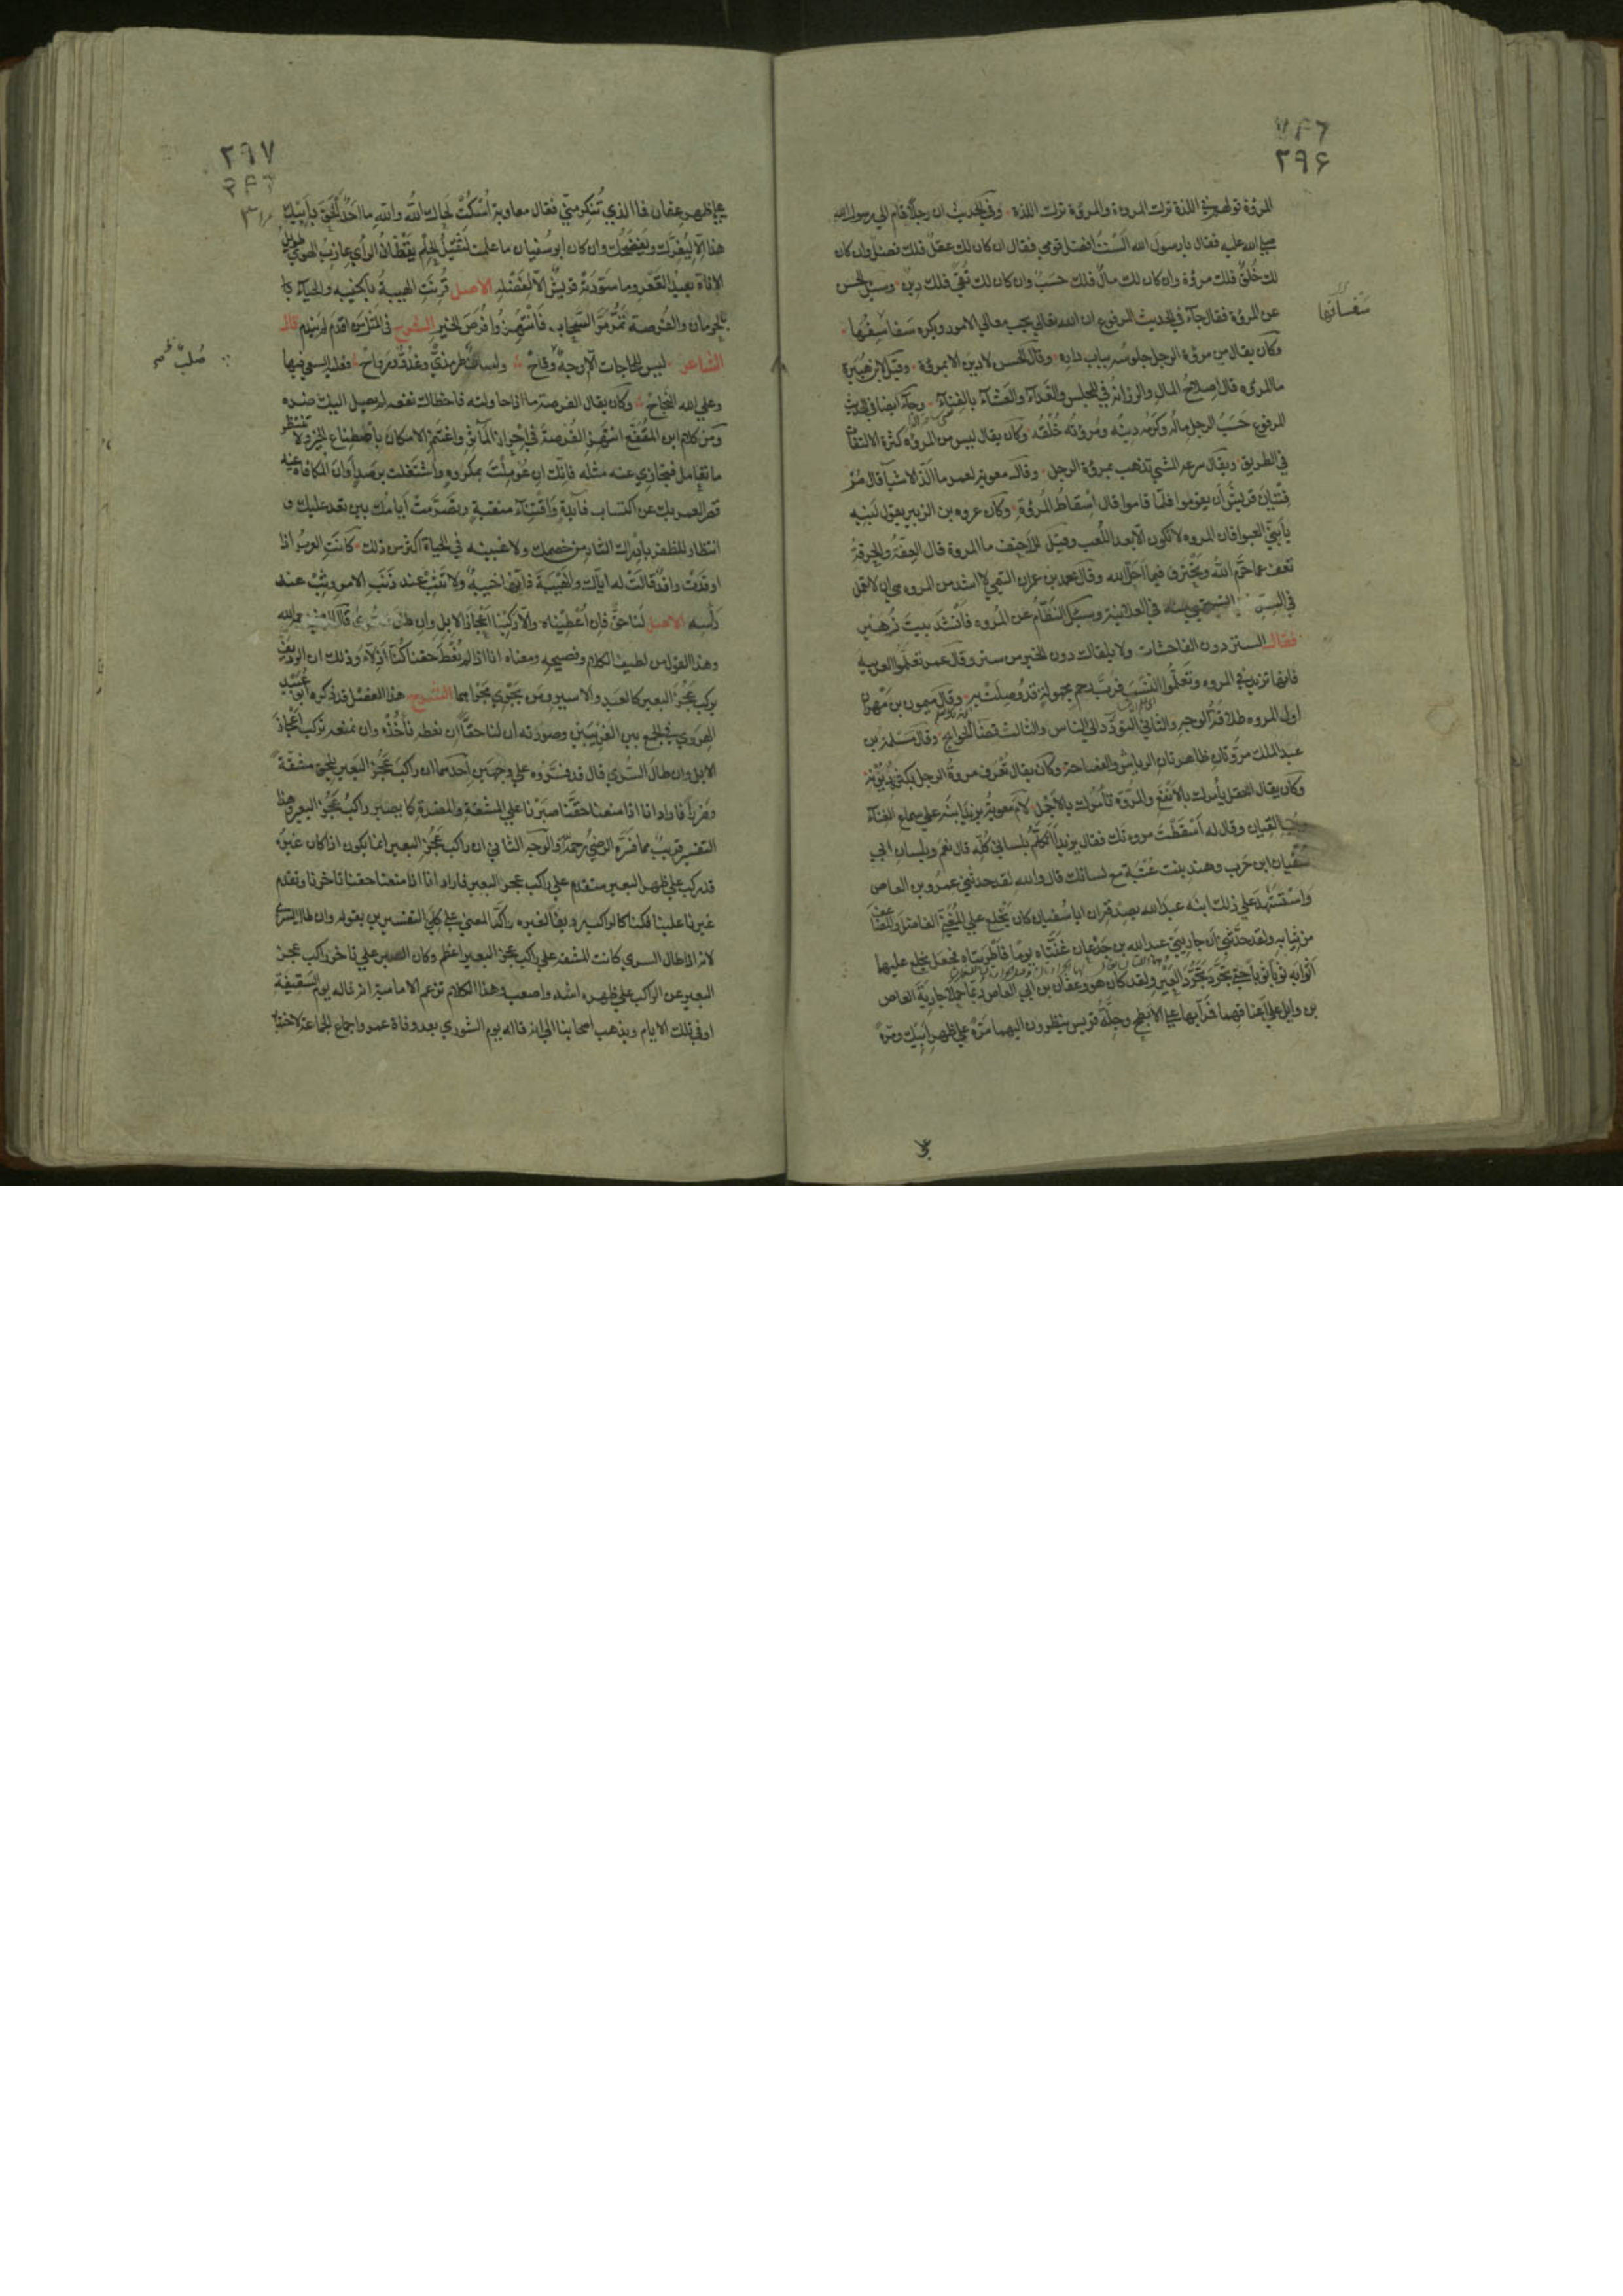 ٢٩۶
المروة قولهم في اللذة ترك المروءة والمروة ترك اللذة وفي الحديث ان رجلا قام الى رسول الله
صلى الله عليه فقال يا رسول الله الست افضل قومي فقال ان كان لك عقل فلك فضل وان كان
لك خلق فلك مروة وان كان لك مال فلك حسب وان كان لك تقى فلك دين وسئل الحسن
عن المروة فقال جآء في الحديث المرفوع ان الله تعالى يحب معالي الامور ويكره سفاسفها
سفسافها
وكان يقال من مروة الرجل جلوسه بباب داره وقال الحسن لا دين الا بمروة وقيل لابن هبيرة
ما المروه قال اصلاح المال والرزانة في المجلس والغدآء والعشآء بالفنآء وجآء ايضا في الحديث
المرفوع حسب الرجل ماله وكرمه دينه ومروته خلقه وكان يقال ليس من المروه كثرة الالتفات
في الطريق ويقال سرعة المشي تذهب بمروة الرجل وقال معوية لعمرو ما الذ الاشيآ قال مر
فتيان قريش ان يقوموا فلما قاموا قال اسقاط المروة وكان عروه بن الزبير يقول لبنيه
يا بني العبوا فان المروه لا تكون الا بعد اللعب وقيل للاحنف ما المروة قال العفة والحرفة
تعف عما حرم الله وتحترف فيما احل الله وقال محمد بن عمران التيمي لا اشد من المروه وهي ان لا تعمل
في السر في العلانية وسئل النظام عن المروه فانشد بيت زهير
فقال الستر دون الفاحشات ولا يلقاك دون الخير من ستر وقال عمر تعلموا العربيه
فانها تزيد في المروه وتعلموا النسب فرب رحم مجهولة قد وصلت به وقال ميمون بن مهران
اول المروه طلاقة الوجه والثاني التودد الى الناس والثالث قضآ الحوايج وقال مسلمة بن
عبد الملك مروتان ظاهرتان الرياش والفصاحة وكان يقال تعرف مروة الرجل بكثرة ديونه
وكان يقال العقل يأمرك بالانفع والمروة تأمرك بالاجمل لام معوية يزيد ابنه على سماع الغنآء
وحب القيان وقال له اسقطت مروءتك فقال يزيد اتكلم بلساني كلة قال نعم وبلسان ابي
سفيان ابن حرب وهند بنت عتبة مع لسانك قال والله لقد حدثني عمرو بن العاص
واستشهد على ذلك ابنه عبد الله بصدقه ان ابا سفيان كان يخلع على المغني الفاضل والمضاعف
من ثيابه ولقد حدثني ان جاريتي عبد الله بن جدعان غنتاه يوما فاطربتاه فجعل يخلع عليهما
اثوابه ثوبا ثوبا حتى تجرد تجرد العير ولقد كان هو وعفان بن ابي العاص ربما حملا جارية العاص
بن وايل على اعناقهما فمرا بها على الابطح وجلة قريش ينظرون اليهما مرة على ظهر ابيك ومرة
٢٩٧
على ظهر عفان فما الذي تنكر مني فقال معاوية اسكت لحاك الله والله ما احد الحق بابيك
هذا الا ليغرك ويفضحك وان كان ابو سفيان ما علمت لثقيل الحلم يقظان الراي عازب الهوى طويل
الاناة بعيد القعر وما سودته قريش الا لفضله الاصل قرنت الهيبة بالخيبه والحيآء با
بالحرمان والفرصة تمر مر السحاب فانتهزوا فرص الخير الشرح في المثل من اقدم لم يندم قال
الشاعر ليس للحاجات الا وجه وقاح ولسان طرمذي وغدو ورواح فعليه السعي فيها
صلب
وعلى الله النجاح وكان يقال الفرصة ما اذا حاولته فاخطاك نفعه لم يصل اليك ضره
ومن كلام ابن المقفع انتهز الفرصة في احراز المآثر واغتنم الامكان باصطناع الخير ولا تنتظر
ما تعامل فتجازي عنه مثله فانك ان عوملت بمكروه واشتغلت برصد اوان المكافاة عنه
قصر العمر بك عن اكتساب فآيدة واقتنآء منقبة وتصرمت ايامك بين تعد عليك و
انتظار للظفر بادراك الثار من خصمك ولا عيشه في الحياة اكثر من ذلك كانت العرب اذا
اوفدت وافدا قالت له اياك والهيبة فانها خيبة ولا تبت عند ذنب الامر وبت عند
رأسه الاصل لنا حق فان اعطيناه والا ركبنا اعجاز الابل وان طال السرى قال الرضي رحمه الله
وهذا القول من لطيف الكلام وفصيحه ومعناه انا اذا لم نعط حقنا كنا اذلآء وذلك ان الرديف
يركب عجز البعير كالعبد والاسير ومن يجري مجراهما الشرح هذا الفصل قد ذكره ابو عبيد
الهروي في الجمع بين الغريبين وصورته ان لنا حقا ان نعطه ناخذه وان نمنعه نركب اعجاز
الابل وان طال السرى قال قد فسروه على وجهين احدهما ان راكب عجز البعير يلحقه مشقة
وضرر فاراد انا اذا منعنا حقنا صبرنا على المشقة والمضرة كما يصبر راكب عجز البعير وهذا
التفسير قريب مما فسره الرضي رحمه الله والوجه الثاني ان راكب عجز البعير انما يكون اذا كان غيره
قد ركب على ظهر البعير متقدم على راكب عجز البعير فاراد انا اذا منعنا حقنا تاخرنا وتقدم
غيرنا علينا فكنا كالراكب رديفا لغيره واكد المعنى على كلي التفسيرين بقوله وان طال السرى
لانه اذا طال السرى كانت المشقة على راكب عجز البعير اعظم وكان الصبر على تاخر راكب عجز
البعير عن الراكب على ظهره اشد واصعب وهذا الكلام تزعم الامامية انه قاله يوم السقيفة
او في تلك الايام ويذهب اصحابنا الى انه قاله يوم الشورى بعد وفاة عمر واجماع الجماعة لاختيار